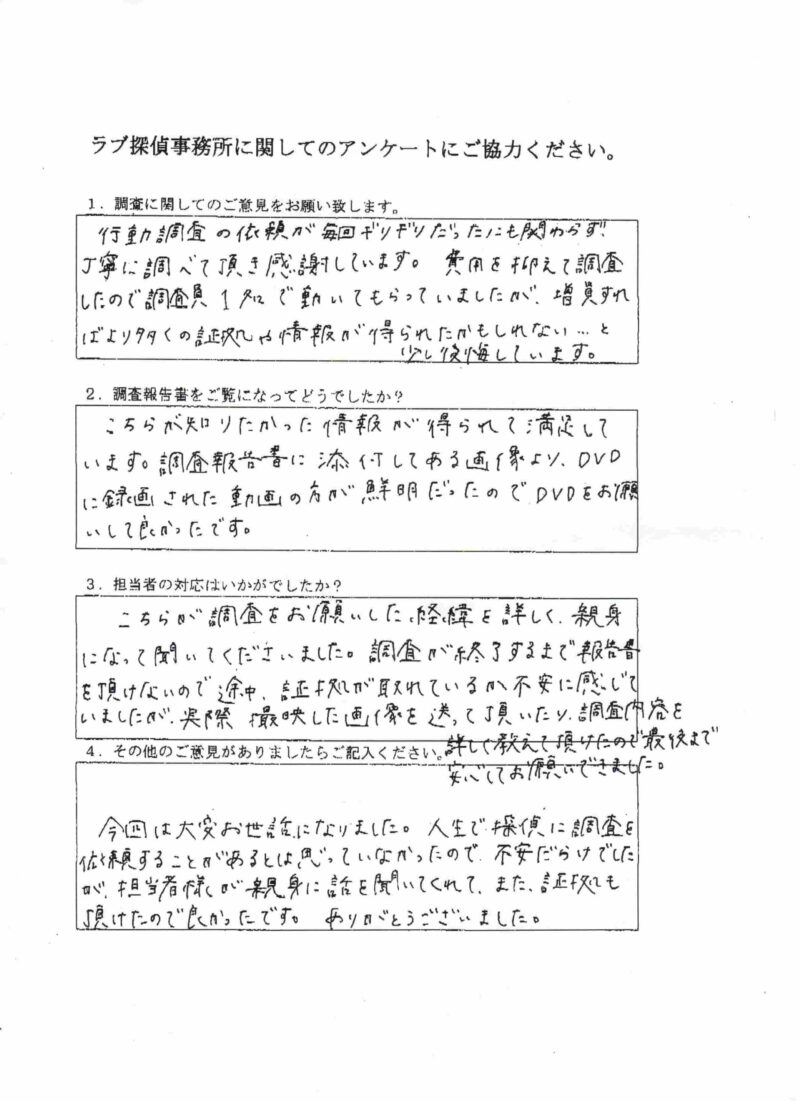 ラブ探偵事務所に関してのアンケートにご協力ください。
1．調査に関してのご意見をお願い致します。
行動調査の依頼が毎回ギリギリだったにも関わらず!
丁寧に調べて頂き感謝しています。費用を抑えて調査
したので調査員1名で動いてもらっていましたが、増員すれ
ばより多くの証拠や情報が得られたかもしれない…と
少し後悔しています。
2．調査報告書をご覧になってどうでしたか？
こちらが知りたかった情報が得られて満足して
います。調査報告書に添付してある画像より、DVD
に録画された動画の方が鮮明だったのでDVDをお願
いして良かったです。
3．担当者の対応はいかがでしたか？
こちらが調査をお願いした経緯を詳しく、親身
になって聞いてくださいました。調査が終了するまで報告書
を頂けないので途中、証拠が取れているか不安に感じて
いましたが、実際撮映した画像を送って頂いたり、調査内容を
詳しく教えて頂けたので最後まで
安心してお願いできました。
4．その他のご意見がありましたらご記入ください。
今回は大変お世話になりました。人生で探偵に調査を
依頼することがあるとは思っていなかったので、不安だらけでした
が、担当者様が親身に話を聞いてくれて、また、証拠も
頂けたので良かったです。ありがとうございました。